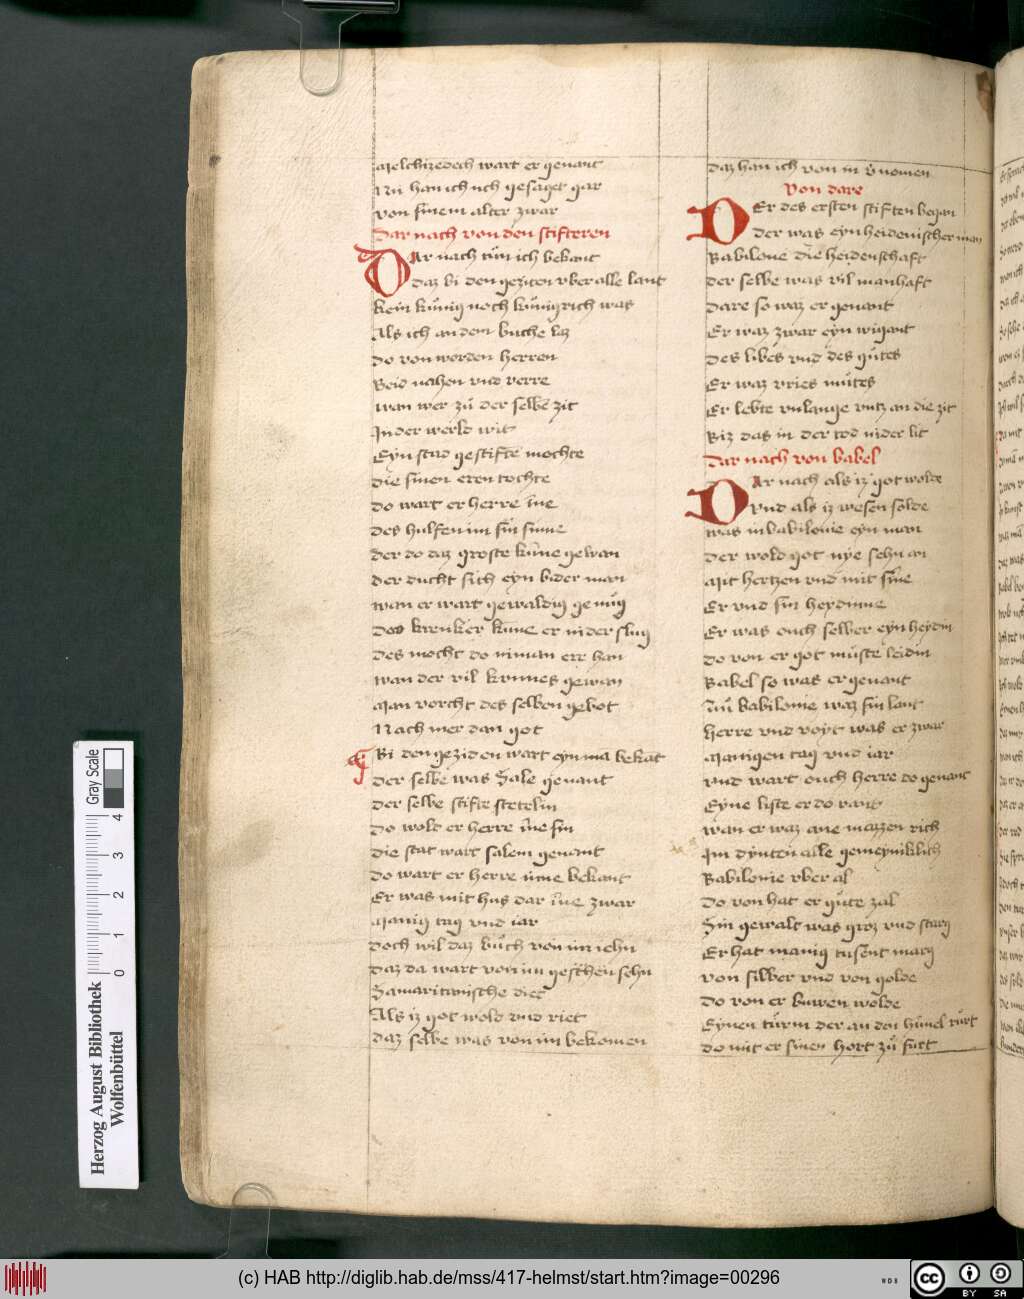 Melchizedech wart er genant
Nu han ich uch gesaget gar
von sinem alter zwar
Dar nach von den stifteren
DAr nach tůn ich bekant
daz bi den geziten vber alle lant
kein kůnig noch kůnigrich was
Als ich an dem buche laz
do von worden herren
Beid nahen vnd verre
wan wer zů der selbē zit
In der werld wit
Eyn stad gestiftē mochte
die sinen eren tochte
do wart er herre īne
des hulfen im sin sinne
der do daz groste kūne gewan
der ducht sich eyn bider man
wan er wart gewaldig genůg
kūne er nider slug
des mocht do niman err han
wan der vil kunnes gewan
Man vorcht des selben gebot
Nach mer dan got
Bi den geziden wart eyn mā bekāt
der selbe was Sale genant
der selbe stifte stetelin
do wold er herre īne sin
die stat wart salem genant
do wart er herre inne bekant
Er was mit hus dar īne zwar
Manig tag vnd iar
doch wil daz bůch von im iehn
daz da wart von im geschehen sehn
Samaritanische diet
Als iz got wold vnd riet
daz selbe was von im bekomen
daz han ich von in v̄nomen
von dare
DEr des ersten stiften began
der was eyn heidenischer man
Babilonie die heidenschaft
der selbe was vil manhaft
dare so waz er genant
Er waz zwar eyn wigant
Des libes vnd des gůtes
Er waz vries můtes
Er lebte vnlange vntz an die zit
Biz das in der tod nider lit
Dar nach von babel
DAr nach als iz got wolde
vnd als iz wesen solde
was in babilonie eyn man
der wold got nye sehn an
Mit hertzen vnd mit sīne
Er vnd sin heydinne
Er was ouch selber eyn heydin
do von er got můste leidin
Babel so was er genant
Inn babilonie waz sin lant
herre vnd voyt was er zwar
Manigen tag vnd iar
vnd wart ouch herre do genant
Eyne liste er do vant
wan er waz ane mazzen rich
Im dynten alle gemeyniklich
Babilonie vber al
do von hat er gůte zal
Sin gewalt was groz vnd starg
Er hat manig tusent marg
von silber vnd von golde
do von er buwen wolde
Eynen tůrm der an den himel růrt
do mit er sinen hort zů fůrt
Herzog August Bibliothek
Wolfenbüttel
0 1 2 3 4
Gray Scale
(c) HAB http://diglib.hab.de/mss/417-helmst/start.htm?image=00296
WDB
cc BY SA